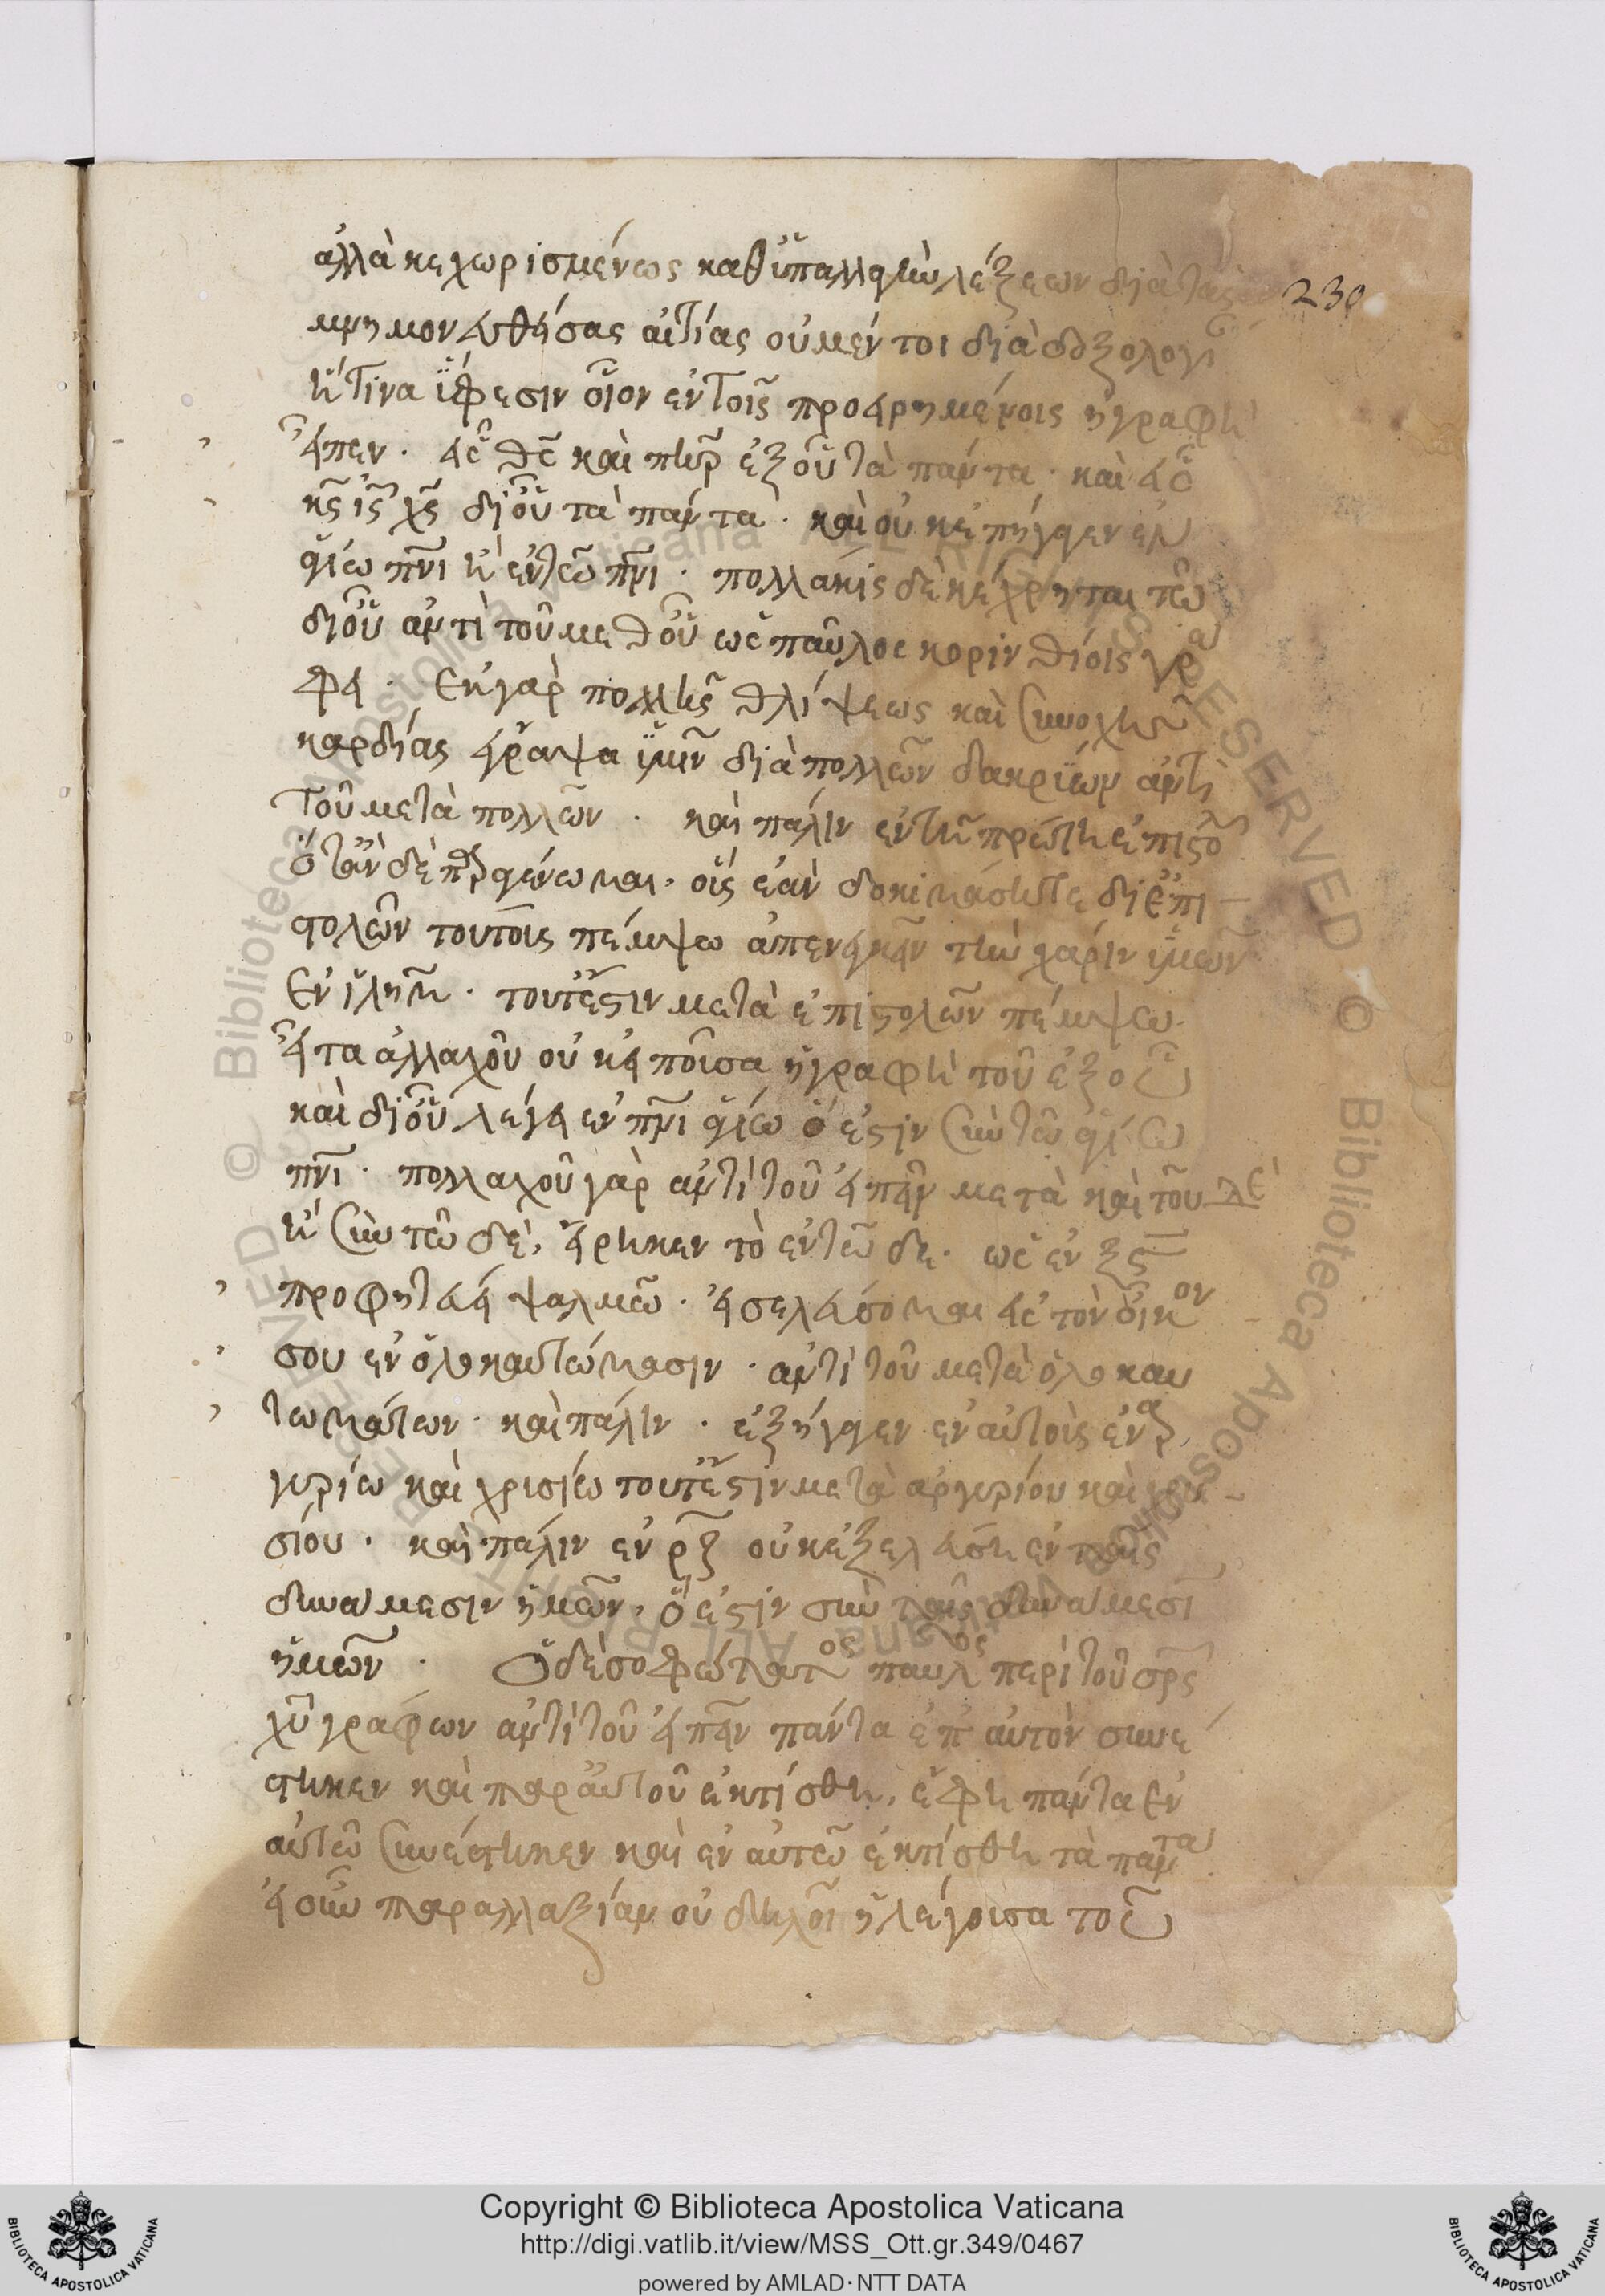 ἀλλὰ κεχωρισμένως καθ ὑπαλλαγὴν λέξεων διὰ τὰς 230
μνημονευθείσας αἰτίας οὐ μέν τοι διὰ δοξολογι
ἤ τινα ὕφεσιν οἷον ἐν τοῖς προειρημένοις ἡ γραφὴ
εἶπεν · εἷς θς καὶ πὴρ ἐξ οὗ τὰ πάντα · καὶ εἷς
κς ις χς δι οὗ τὰ πάντα · καὶ οὐκ ἐπήγαγεν ἐν
ἁγίω πνι ἢ ἐν τῶ πνι · πολλάκις δὲ κέχρηται τῶ
δι οὗ ἀντὶ τοῦ μεθ οὗ ὡς παῦλος κορινθίοις γρά
φει · Ἐκ γὰρ πολλῆς θλίψεως καὶ συνοχῆς
καρδίας ἔγραψα ὑμῖν διὰ πολλῶν δακρύων ἀντὶ
τοῦ μετὰ πολλῶν · καὶ πάλιν ἐν τῆ πρώτη ἐπιστο
ὅταν δὲ παραγένωμαι, οὓς ἐὰν δοκιμάσητε δι ἐπι
στολῶν τούτοις πέμψω ἀπενεγκεῖν τὴν χάριν ὑμῶν
Ἐν ιλημ · τουτέστιν μετὰ ἐπιστολῶν πέμψω.
εἶτα ἀλλαχοῦ οὐκ εἰποῦσα ἡ γραφὴ τοῦ ἐξ οὗ
καὶ δι οὗ λέγει ἐν πνι ἁγίω ὅ ἐστιν σὺν τῶ ἁγίω
πνι · πολλαχοῦ γὰρ ἀντὶ τοῦ εἰπεῖν μετὰ καὶ τοῦ λε
ἢ σὺν τῶ δὲ, εἴρηκεν τὸ ἐν τῶ δε · ὡς ἐν ξε
προφητεύει ψαλμῶ · εἰσελεύσομαι εἰς τὸν οἶκον
σου ἐν ὁλοκαυτώμασιν · ἀντὶ τοῦ μετὰ ὁλοκαυ
τωμάτων · καὶ πάλιν · ἐξήγαγεν αὐτοὺς ἐν αρ
γυρίω καὶ χρυσίω τουτέστιν μετὰ ἀργυρίου καὶ χρυ
σίου · καὶ πάλιν ἐν ρζ οὐκ ἐξελεύση ἐν ταῖς
δυνάμεσιν ἡμῶν, ὅ ἐστιν σὺν ταῖς δυνάμεσι
ἡμῶν · Ὁ δὲ σοφώτατος παῦλος περὶ τοῦ σρς
χυ γράφων ἀντὶ τοῦ εἰπεῖν πάντα ἐπ αὐτὸν συνέ
στηκεν καὶ παρ αὐτοῦ ἐκτίσθη, ἔφη πάντα ἐν
αὐτῶ συνέστηκεν καὶ ἐν αὐτῶ ἐκτίσθη τὰ πάντα
εἰς οὖν παραλλαξίαν οὐ δηλοῖ ἡ λέγουσα τοῦ
Copyright © Biblioteca Apostolica Vaticana
http://digi.vatlib.it/view/MSS_Ott.gr.349/0467
powered by AMLAD·NTT DATA